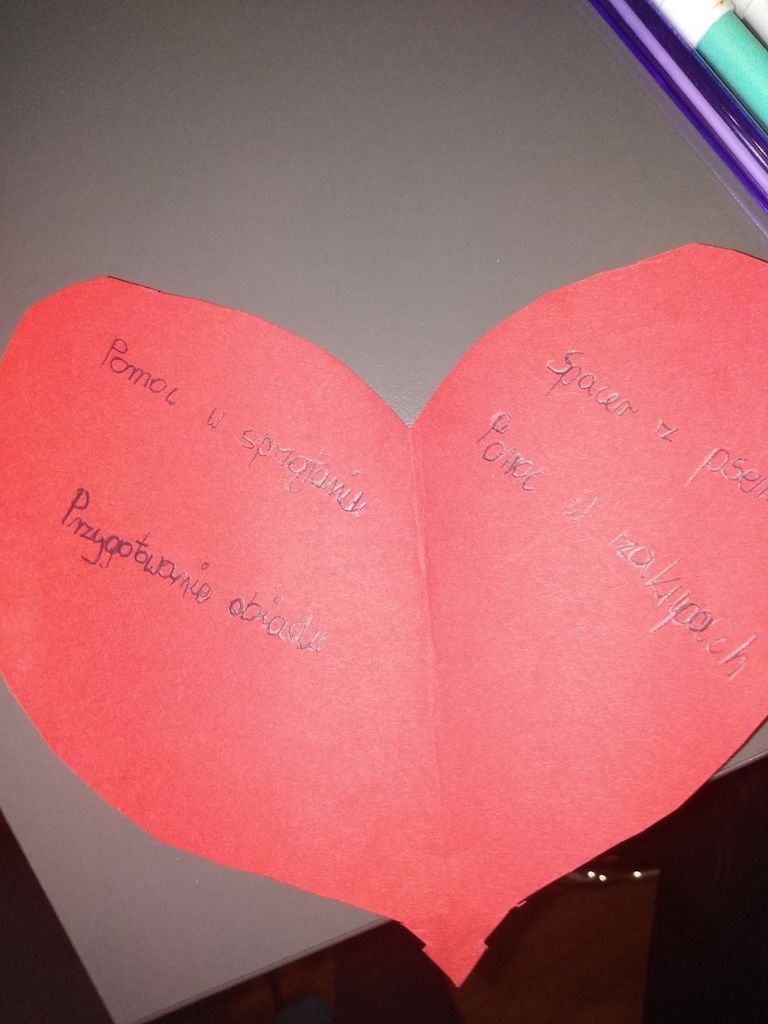 Pomoc w sprzątaniu
Przygotwanie obiadu
Spacer z psem
Pomoc w zakupach